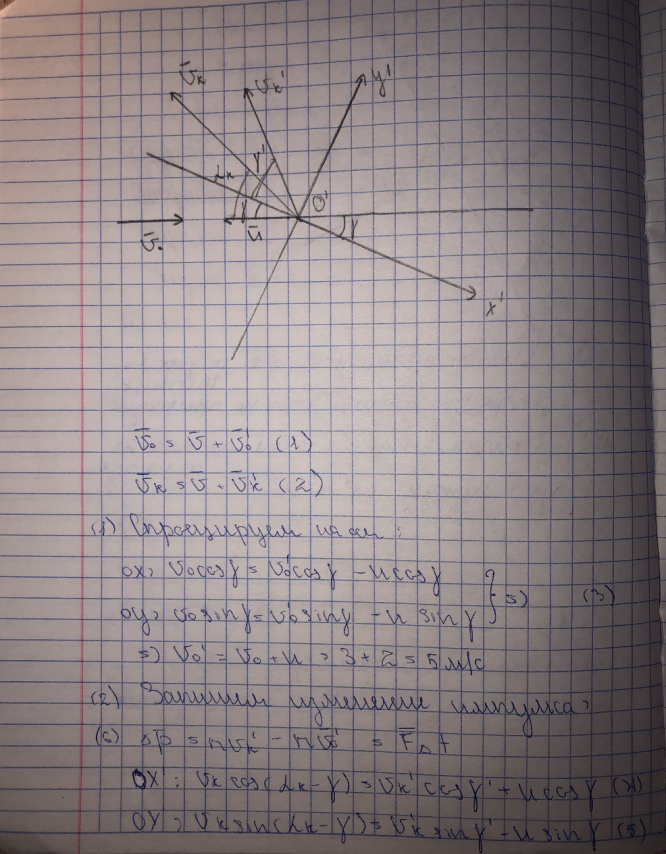 v̄ₖ
v̄ₖ'
y'
αₖ
γ'
O'
v̄₀
ū
γ
γ
x'
v̄₀ = v̄ + v̄₀' (1)
v̄ₖ = v̄ + v̄ₖ' (2)
(1) Спроецируем на оси:
ox: v₀cosγ = v₀'cosγ - ucosγ
oy: v₀sinγ = v₀'sinγ - u sinγ } => (3)
=> v₀' = v₀ + u = 3 + 2 = 5 м/с
(2) Запишем изменение импульса:
(6) Δp̄ = mv̄ₖ' - mv̄₀' = F̄Δt
OX': vₖ cos(αₖ-γ) = vₖ' cosγ' + u cosγ (4)
OY: vₖsin(αₖ-γ) = vₖ' sinγ' - u sinγ (5)